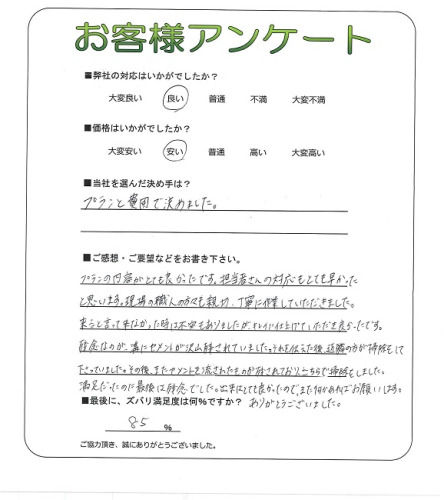 お客様アンケート
■弊社の対応はいかがでしたか？
大変良い 良い 普通 不満 大変不満
■価格はいかがでしたか？
大変安い 安い 普通 高い 大変高い
■当社を選んだ決め手は？
プランと費用で決めました。
■ご感想・ご要望などをお書き下さい。
プランの内容がとても良かったです。担当者さんの対応もとても早かった
と思います。現場の職人の方々も親切、丁寧に作業していただきました。
来ると言って来なかった時は不安もありましたが、キレイに仕上げていただき良かったです。
残念なのが、溝にセメントが沢山残されていました。それを伝えた後、近隣の方が掃除をして
下さっていました。その後、またセメントを流されたものが残されておりこちらで掃除をしました。
満足だったのに最後は残念でした。出来はとても良かったので、また何かあればお願いします。
ありがとうございました。
■最後に、ズバリ満足度は何％ですか？
85 %
ご協力頂き、誠にありがとうございました。